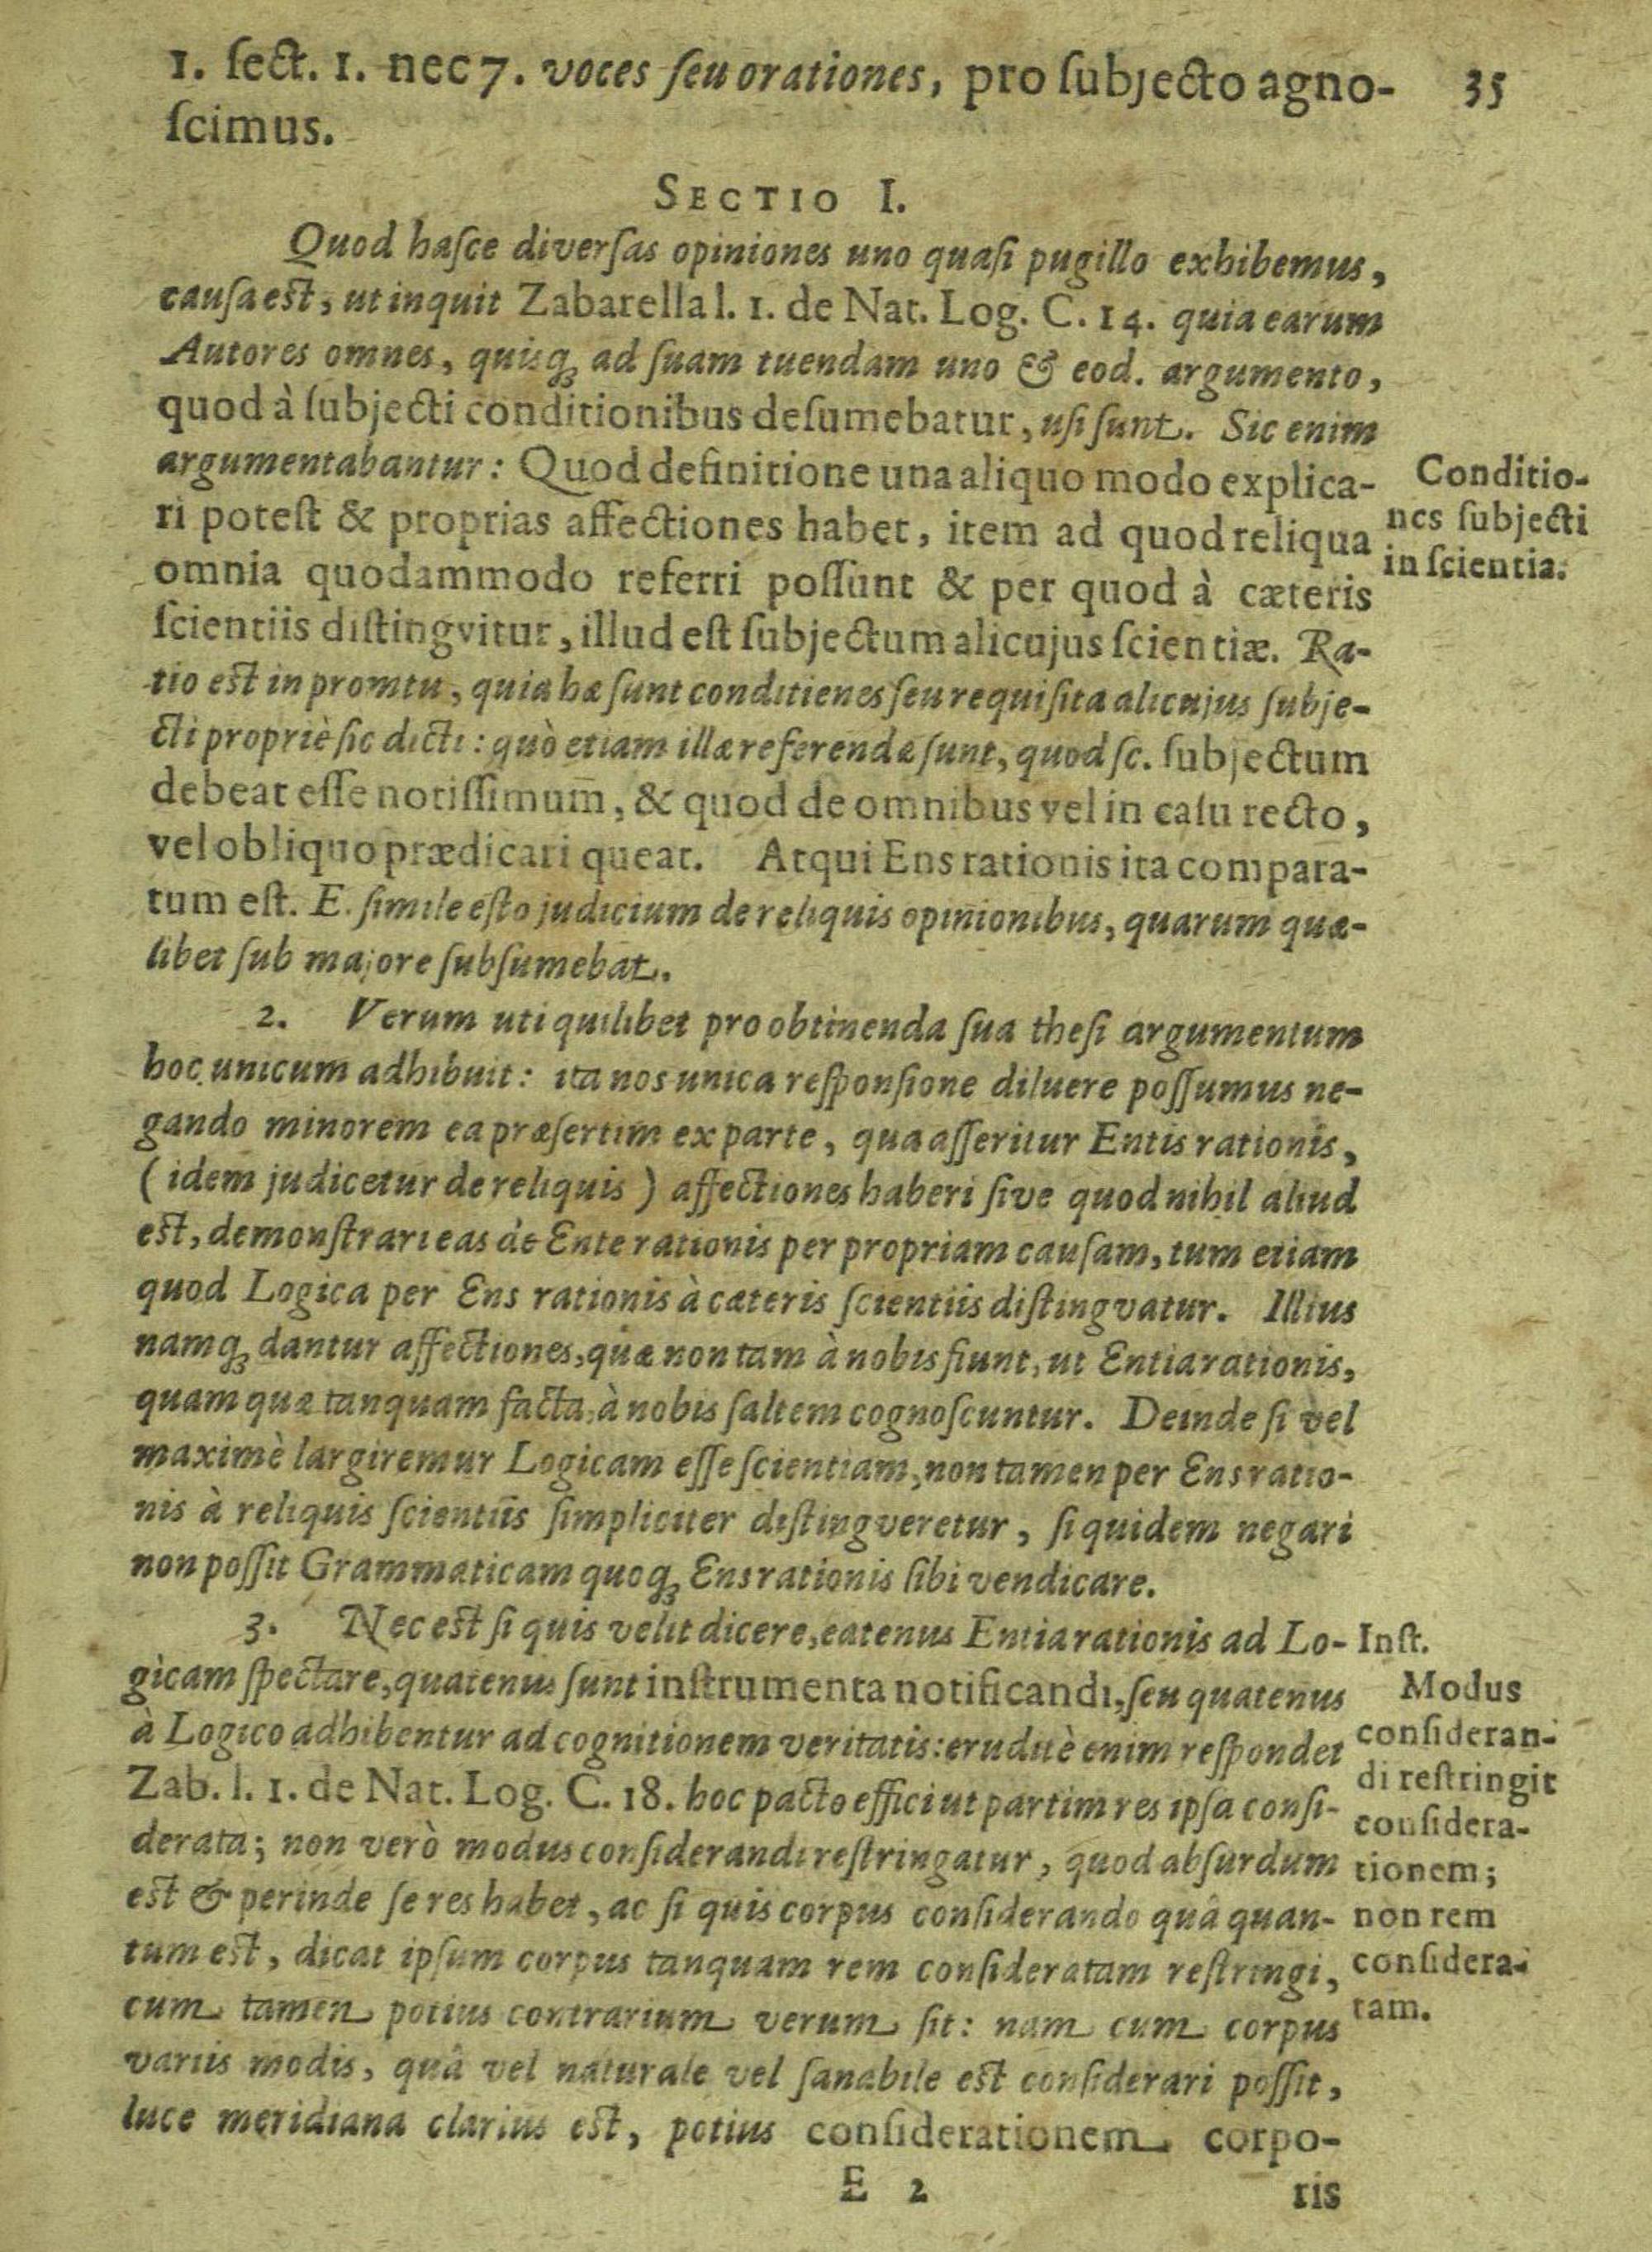 1. ſect. 1. nec 7. voces ſeu orationes, pro ſubjecto agno-
35
ſcimus.
SECTIO I.
Quod haſce diverſas opiniones uno quaſi pugillo exhibemus,
cauſa est, ut inquit Zabarella l. 1. de Nat. Log. C. 14. quia earum
Autores omnes, quisq; ad ſuam tuendam uno & eod. argumento,
quod à ſubjecti conditionibus deſumebatur, uſi ſunt. Sic enim
argumentabantur: Quod definitione una aliquo modo explica-
ri poteſt & proprias affectiones habet, item ad quod reliqua
omnia quodammodo referri poſſunt & per quod à cæteris
ſcientiis diſtingvitur, illud eſt ſubjectum alicujus ſcientiæ. Ra-
tio est in promtu, quia hæ ſunt conditienes ſeu requiſita alicujus ſubje-
cti propriè ſic dicti: quò etiam illæ referendæ ſunt, quod ſc. ſubjectum
debeat eſſe notiſſimum̄, & quod de omnibus vel in caſu recto,
vel obliquo prædicari queat. Atqui Ens rationis ita compara-
tum eſt. E. ſimile eſto judicium de reliquis opinionibus, quarum quæ-
libet ſub majore ſubſumebat.
Conditio-
nes ſubjecti
in ſcientia.
2. Verum uti quilibet pro obtinenda ſua theſi argumentum
hoc unicum adhibuit: ita nos unica reſponſione diluere poſſumus ne-
gando minorem ea præſertim ex parte, qua aſſeritur Entis rationis,
( idem judicetur de reliquis ) affectiones haberi ſive quod nihil aliud
est, demonſtrari eas de Ente rationis per propriam cauſam, tum etiam
quod Logica per Ens rationis à cæteris ſcientiis diſtingvatur. Illius
namq; dantur affectiones, quæ non tam à nobis fiunt, ut Entia rationis,
quam quæ tanquam facta, à nobis ſaltem cognoſcuntur. Deinde ſi vel
maximè largiremur Logicam eſſe ſcientiam, non tamen per Ens ratio-
nis à reliquis ſcientiis ſimpliciter diſtingveretur, ſi quidem negari
non poſſit Grammaticam quoq; Ens rationis ſibi vendicare.
3. Nec est ſi quis velit dicere, eatenus Entia rationis ad Lo-
gicam ſpectare, quatenus ſunt inſtrumenta notificandi, ſeu quatenus
à Logico adhibentur ad cognitionem veritatis: eruditè enim reſpondet
Zab. l. 1. de Nat. Log. C. 18. hoc pacto effici ut partim res ipſa conſi-
derata; non verò modus conſiderandi reſtringatur, quod abſurdum
est & perinde ſe res habet, ac ſi quis corpus conſiderando quâ quan-
tum est, dicat ipſum corpus tanquam rem conſideratam reſtringi,
cum tamen potius contrarium verum ſit: nam cum corpus
variis modis, quâ vel naturale vel ſanabile est conſiderari poſſit,
luce meridiana clarius est, potius conſiderationem corpo-
Inſt.
Modus
conſideran-
di reſtringit
conſidera-
tionem;
non rem
conſidera-
tam.
E 2
ris